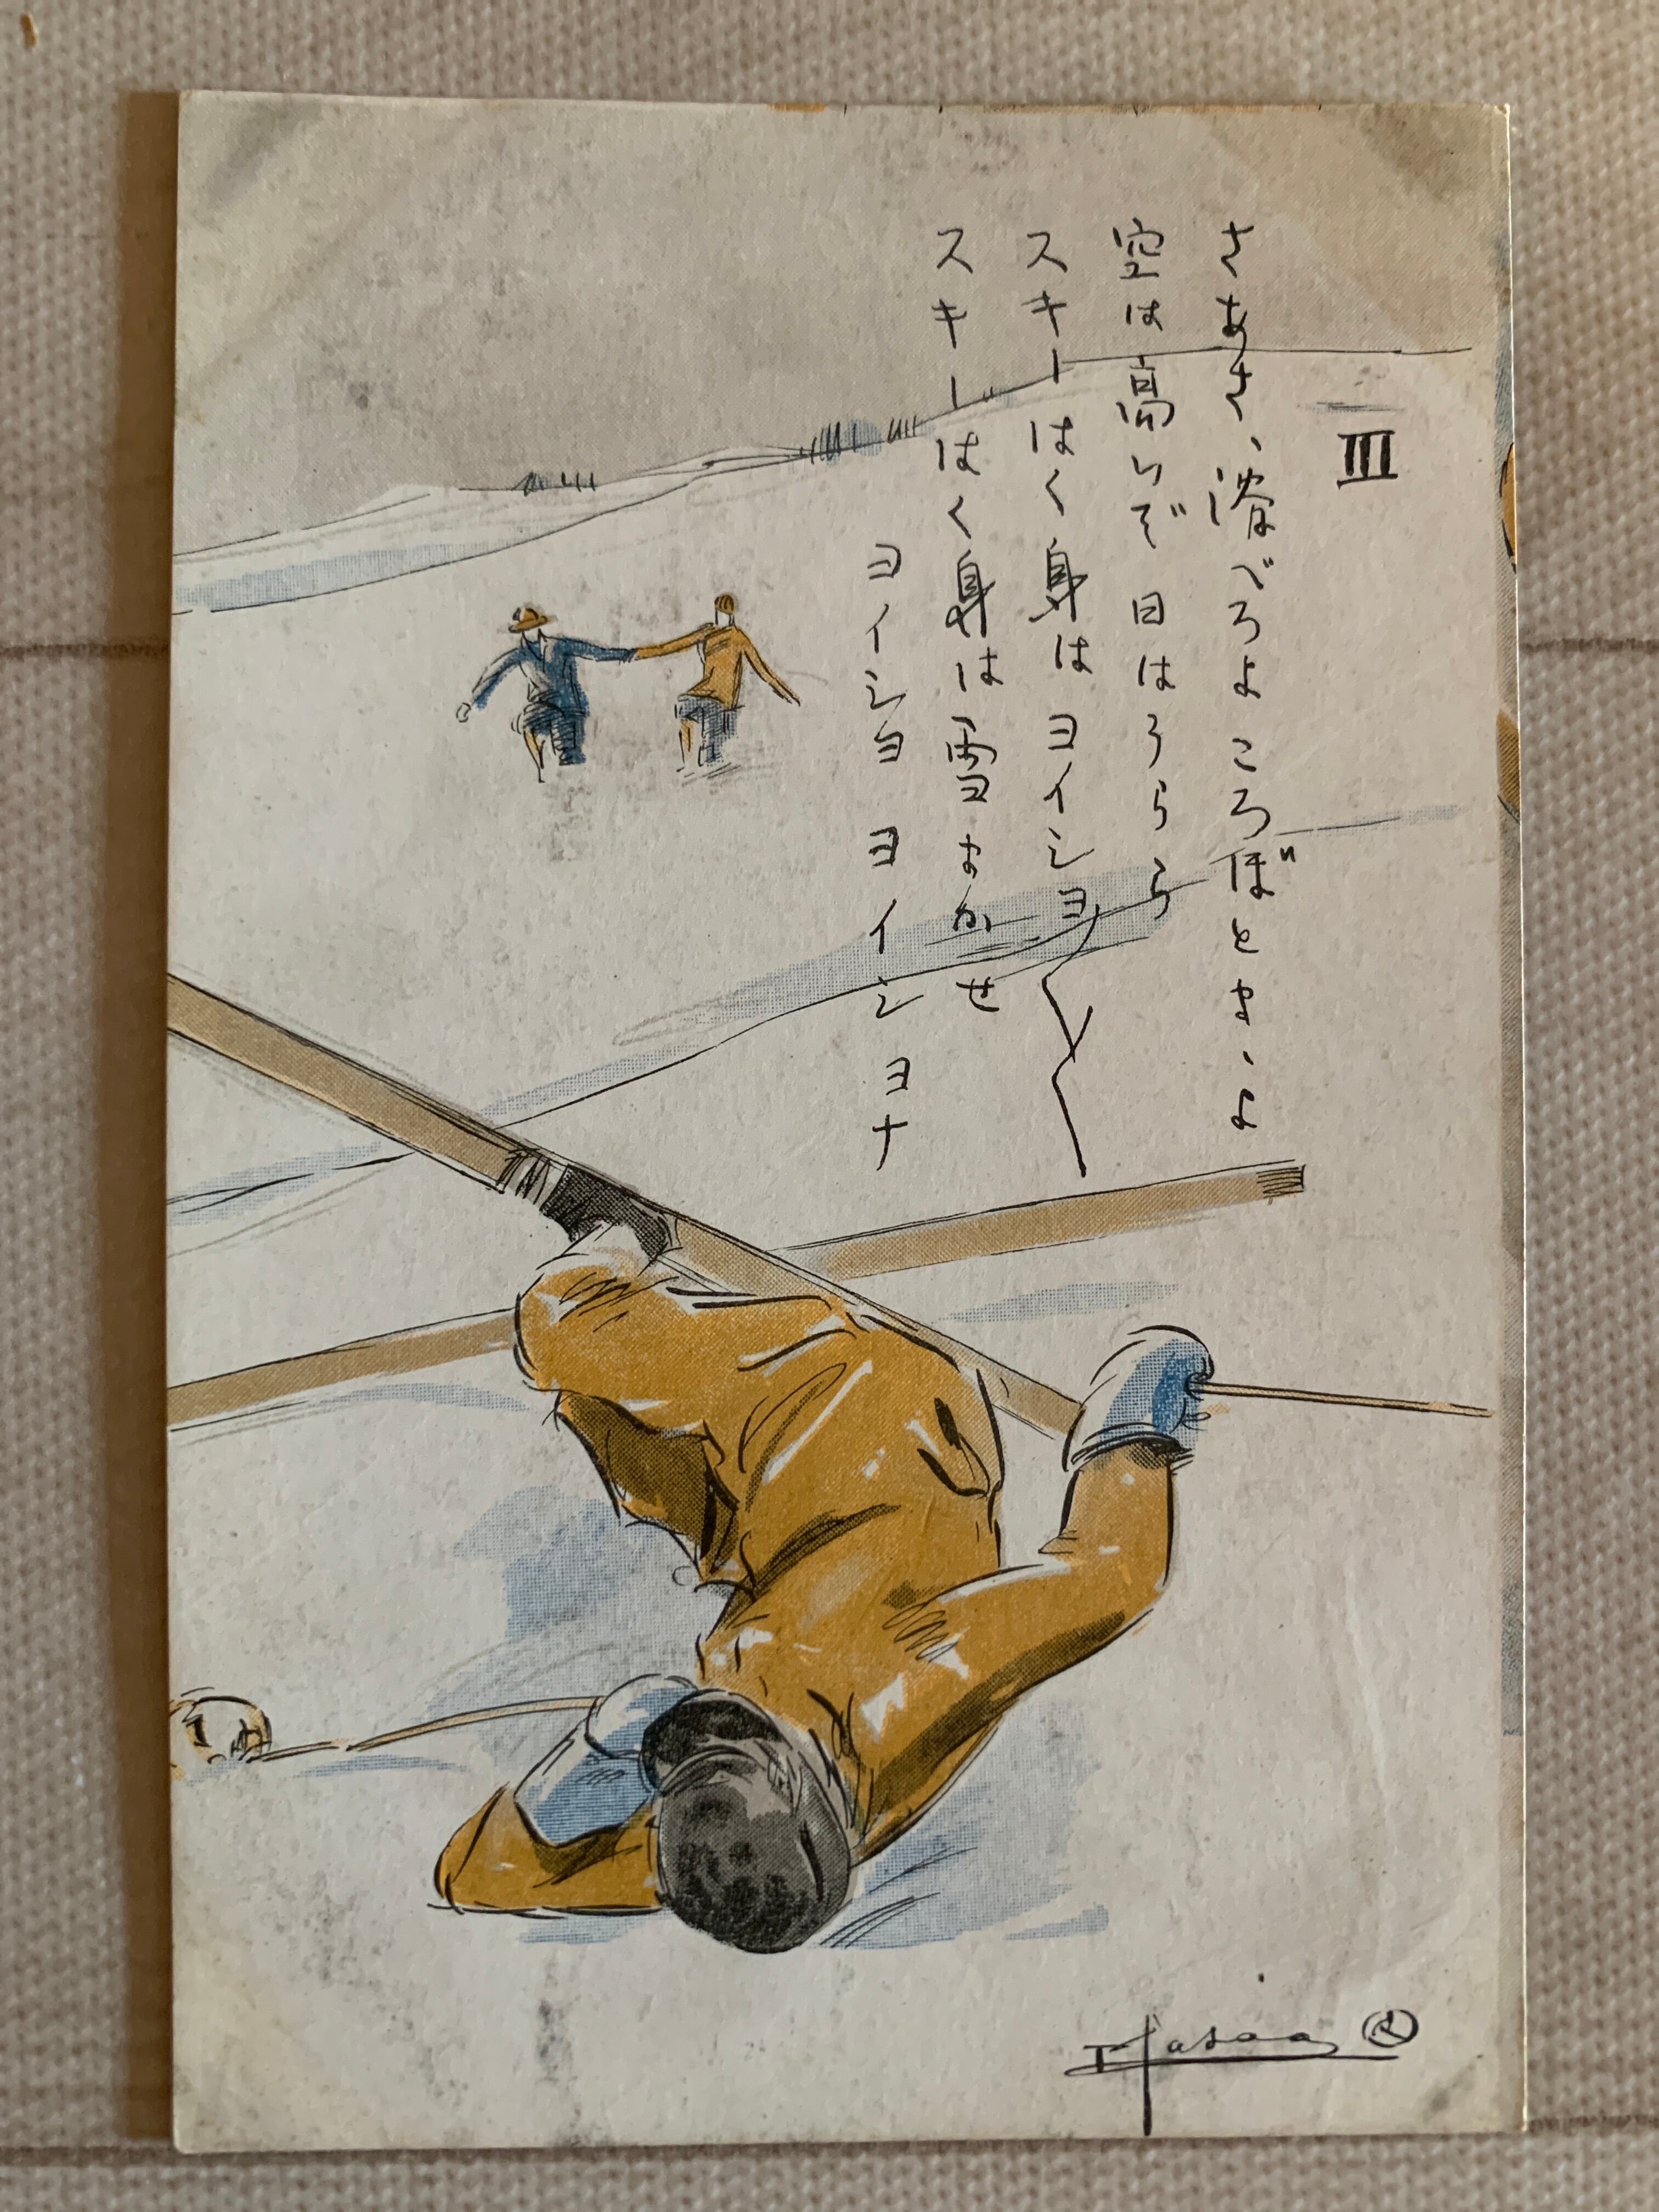 III
さあさ、滑べろよころぼとまゝよ
空は高いぞ 日はうらら
スキーはく身はヨイシヨ〱
スキーはく身は雪まかせ
ヨイシヨ ヨイシヨナ